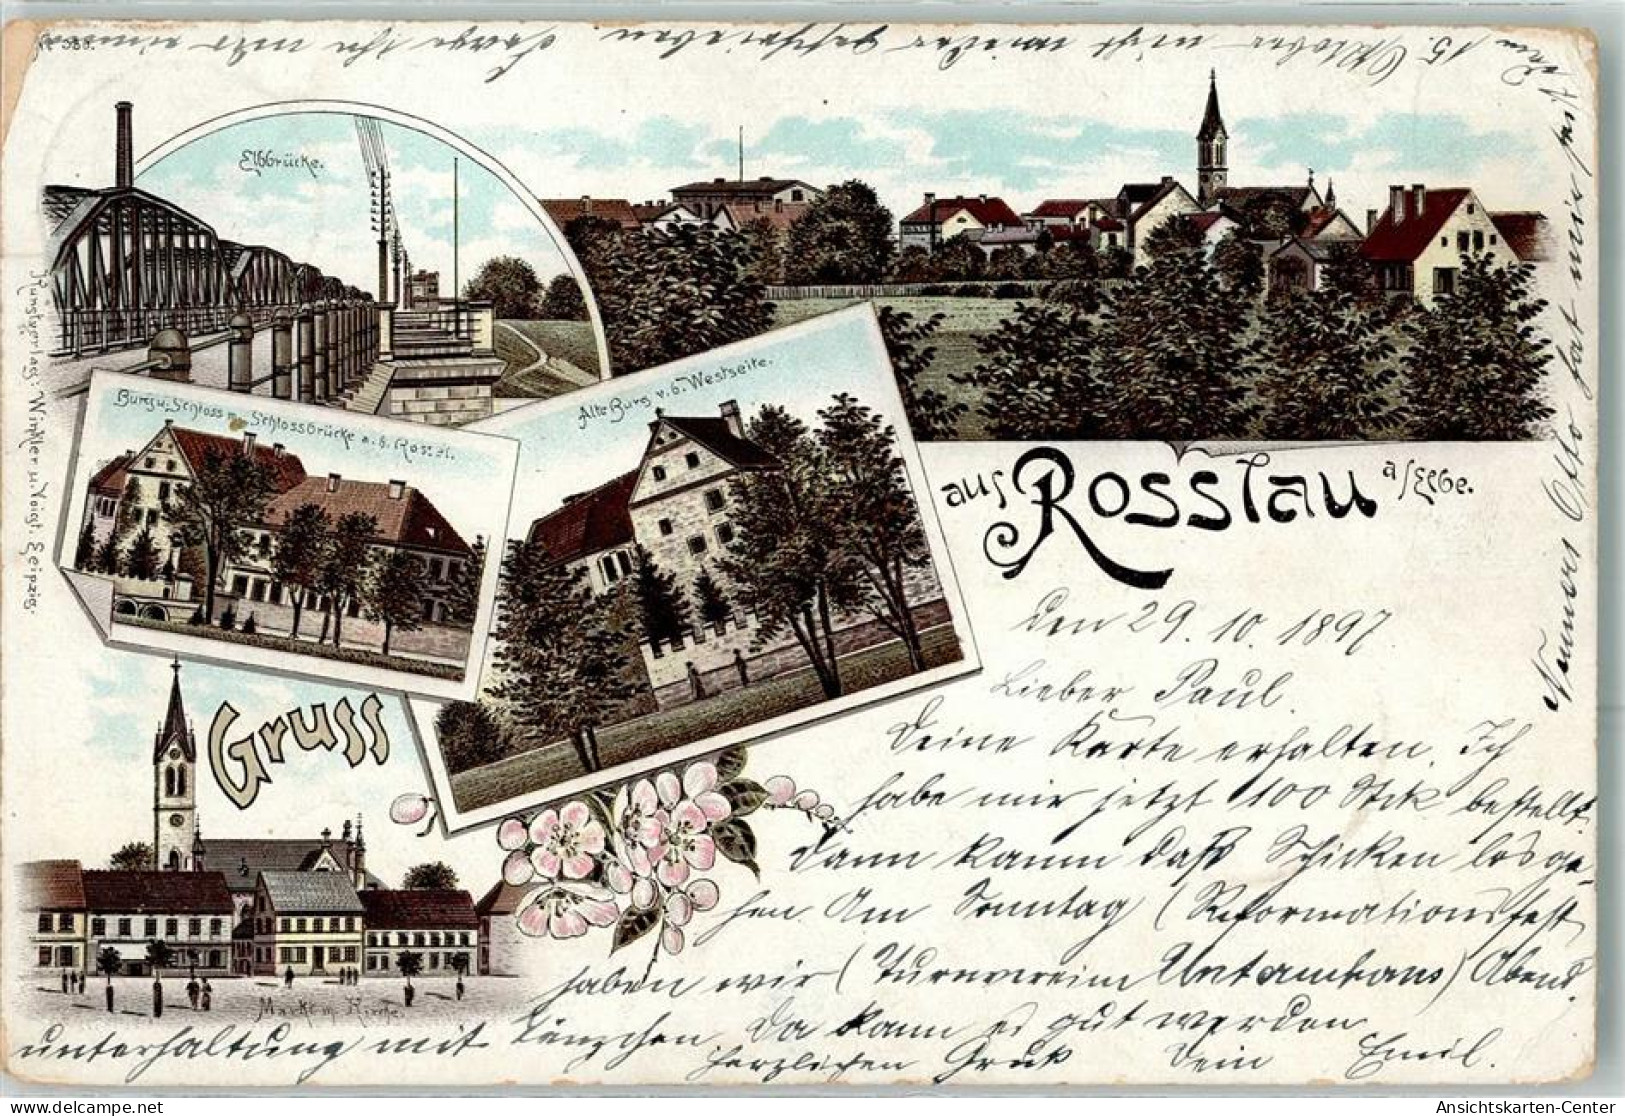 Elbbrücke.
Burg u. Schloss m. Schlossbrücke a. d. Rossel.
Alte Burg v. d. Westseite.
Gruss
aus Rosslau a/Elbe.
Markt m. Kirche.
Kunstverlag: Winkler u. Voigt, Leipzig.
den 29. 10. 1897
Lieber Paul.
Deine Karte erhalten. Ich
habe mir jetzt 100 Stck bestellt.
Dann kann daß Schicken los ge-
hen. Am Sonntag (Reformationsfest
haben wir (Turnverein Abend
unterhaltung mit Tänzchen da kann es gut werden
Herzlichen Gruß Dein Emil.
Otto hat mir seit
15. Oktober nicht wieder geschrieben
Ansichtskarten-Center